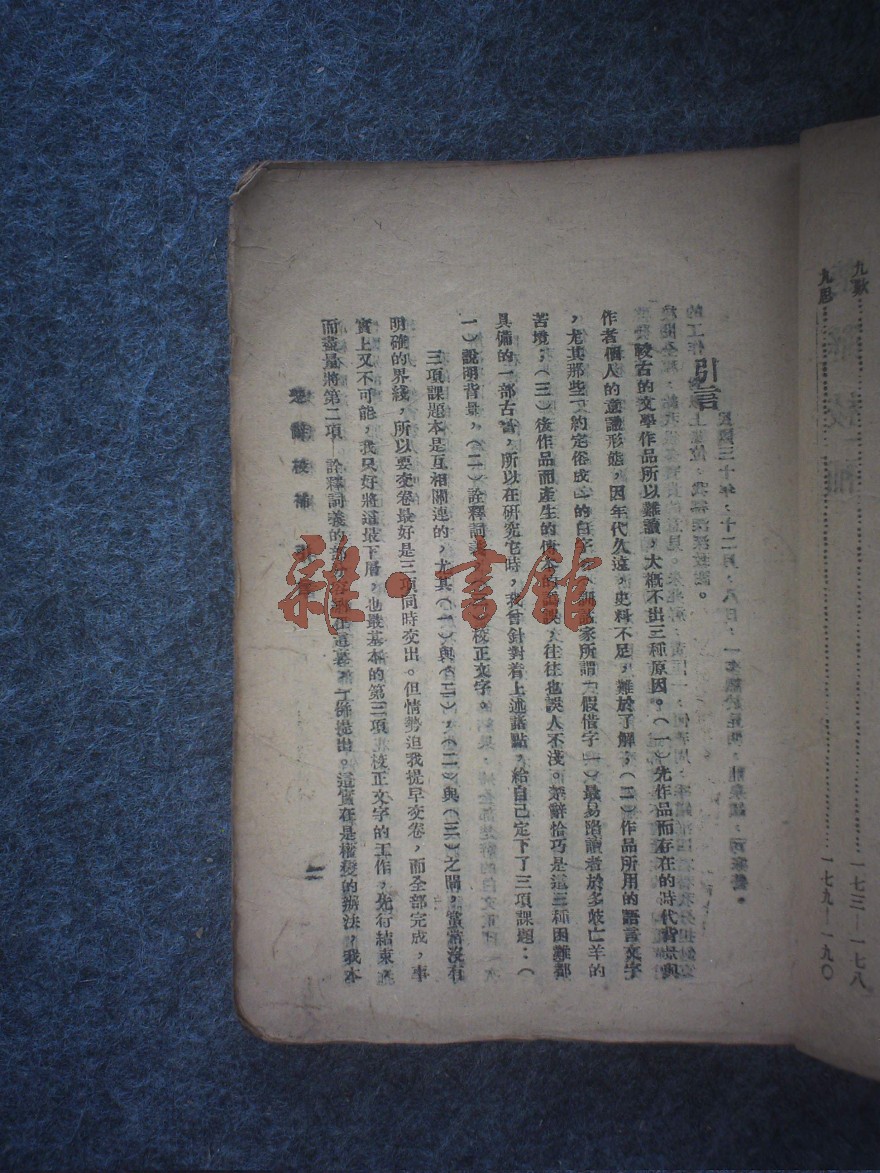 九歎……一七三—一七八
九思……一七九—一九〇
引言
較古的文學作品所以難讀,大概不出三種原因。(一)先作品而存在的時代背景與
作者個人的意識形態,因年代久遠,史料不足,難於了解;(二)作品所用的語言文字
,尤其那些「約定俗成」的白字(訓詁家所謂「假借字」)最易陷讀者於多歧亡羊的
苦境;(三)後作品而產生的傳本的譌誤,往往也誤人不淺。楚辭恰巧是這三種困難都
具備的一部古書,所以在研究它時,我曾針對着上述諸點,給自己定下了三項課題:(
一)說明背景,(二)詮釋詞義,(三)校正文字。
三項課題本是互相關連的,尤其(一)與(二),(二)與(三)之間,常常沒有
明確的界綫,所以要交卷最好是三項同時交出。但情勢迫我提早交卷,而全部完成,事
實上又不可能,我只好將這最下層,也最基本的第三項—校正文字的工作,先行結束,
而盡量將第二項—詮釋詞義的部分容納在這裏,一併提出。這實在是權變的辦法,我本
楚辭校補 引言
雜·書館